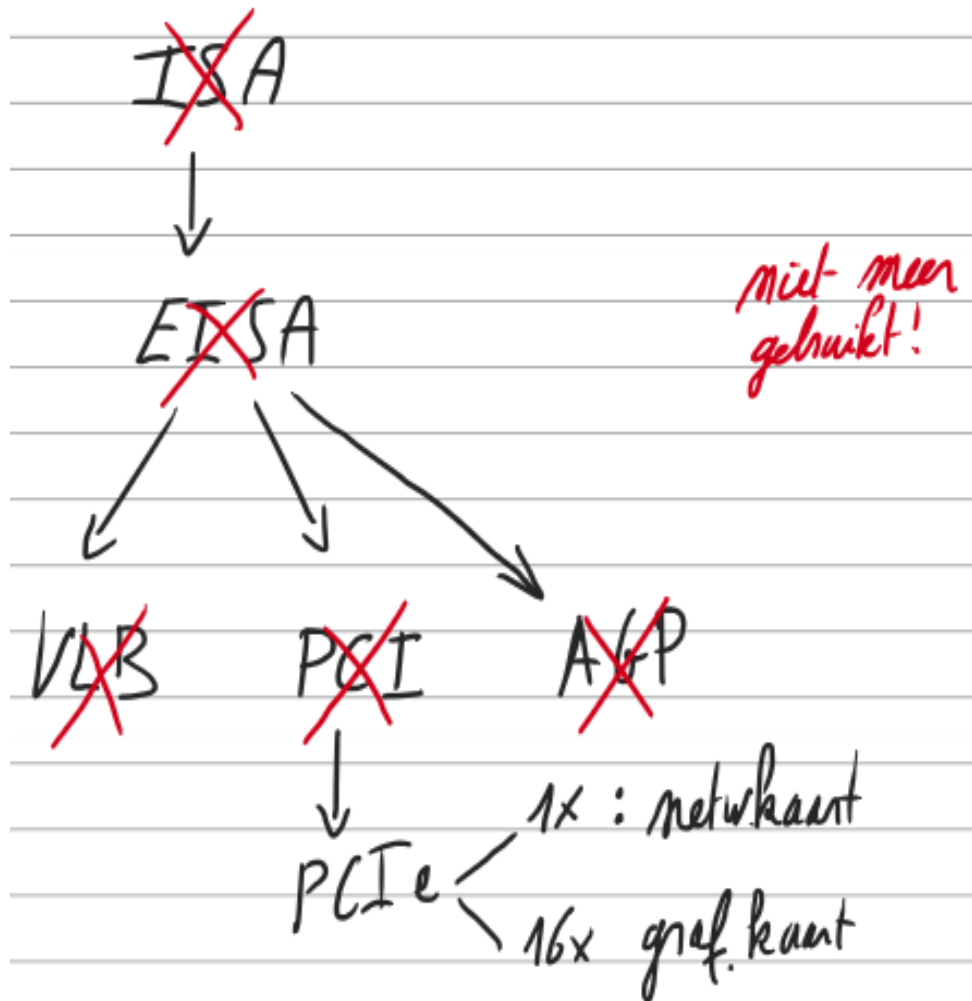 ISA
EISA
niet meer
gebruikt!
VLB PCI AGP
PCIe
1x : netw.kaart
16x graf. kaart